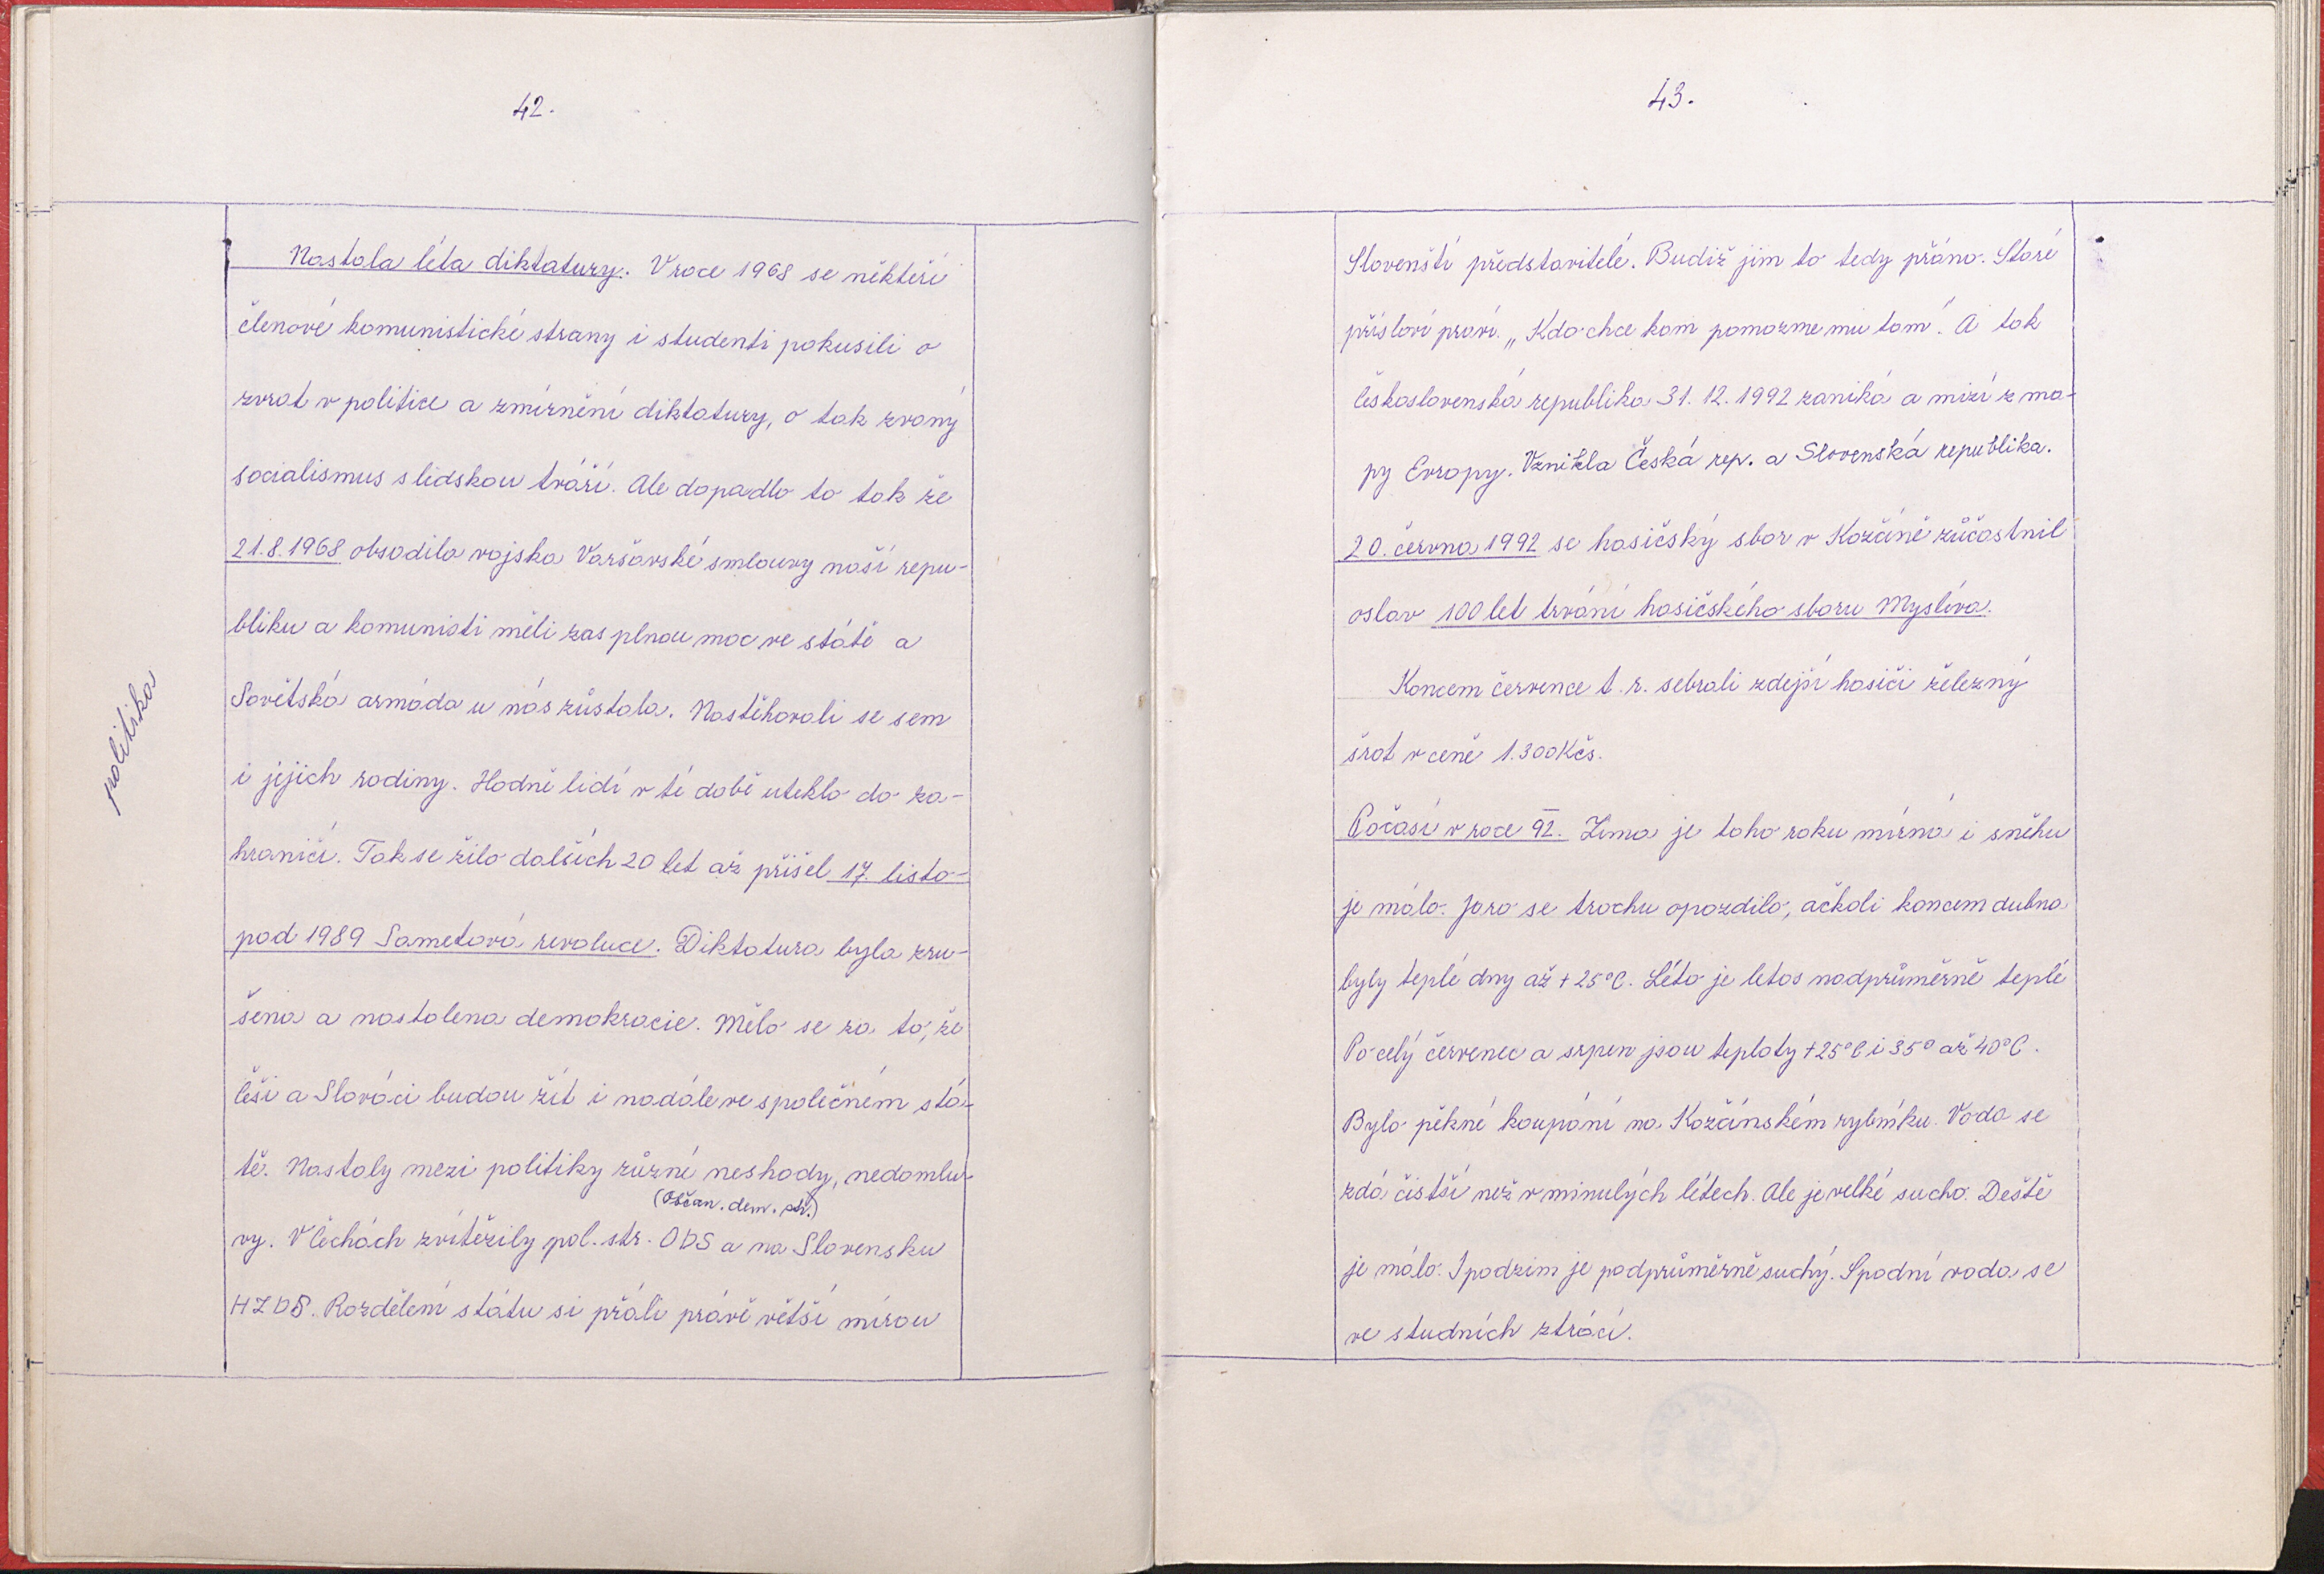 42.
Nastala léta diktatury. V roce 1968 se někteří
členové komunistické strany i studenti pokusili o
zvrat v politice a zmírnění diktatury, o tak zvaný
socialismus s lidskou tváří. Ale dopadlo to tak že
21.8.1968 obsadila vojska Varšavské smlouvy naší repu-
bliku a komunisti měli zas plnou moc ve státě a
Sovětská armáda u nás zůstala. Nastěhovali se sem
i jejich rodiny. Hodně lidí v té době uteklo do za-
hraničí. Tak se žilo dalších 20 let až přišel 17. listo-
pad 1989 Sametová revoluce. Diktatura byla zru-
šena a nastolena demokracie. Mělo se za to, že
Češi a Slováci budou žít i nadále ve společném stá-
tě. Nastaly mezi politiky různé neshody, nedomlu-
(Občan. dem. str.)
vy. V Čechách zvítězily pol. str. ODS a na Slovensku
HZDS. Rozdělení státu si přáli právě větší mírou
politika
43.
Slovenští představitelé. Budiž jim to tedy přáno. Staré
přísloví praví. „Kdo chce kam pomozme mu tam". A tak
Československá republika 31. 12. 1992 zaniká a mizí z ma-
py Evropy. Vznikla Česká rep. a Slovenská republika.
20. června 1992 se hasičský sbor v Kozčíně zůčastnil
oslav 100 let trvání hasičského sboru Myslíva.
Koncem července t. r. sebrali zdejší hasiči železný
šrot v ceně 1.300 Kčs.
Počasí v roce 92. Zima je toho roku mírná i sněhu
je málo. Jaro se trochu opozdilo, ačkoli koncem dubna
byly teplé dny až + 25°C. Léto je letos nadprůměrně teplé
Po celý červenec a srpen jsou teploty +25°C i 35° až 40°C.
Bylo pěkné koupání na Kozčínském rybníku. Voda se
zdá čistší než v minulých létech. Ale je velké sucho. Deště
je málo. I podzim je podprůměrně suchý. Spodní voda se
ve studních ztrácí.